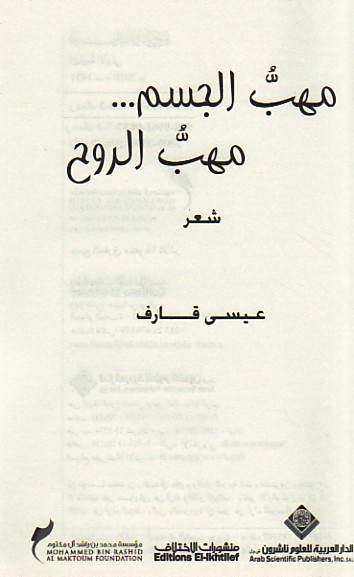 مهبُّ الجسم...
مهبُّ الروح
شعر
عيسى قارف
مؤسسة محمد بن راشد آل مكتوم
MOHAMMED BIN RASHID
AL MAKTOUM FOUNDATION
منشورات الاختلاف
Editions El-Ikhtilef
الدار العربية للعلوم ناشرون
Arab Scientific Publishers, Inc. SAL